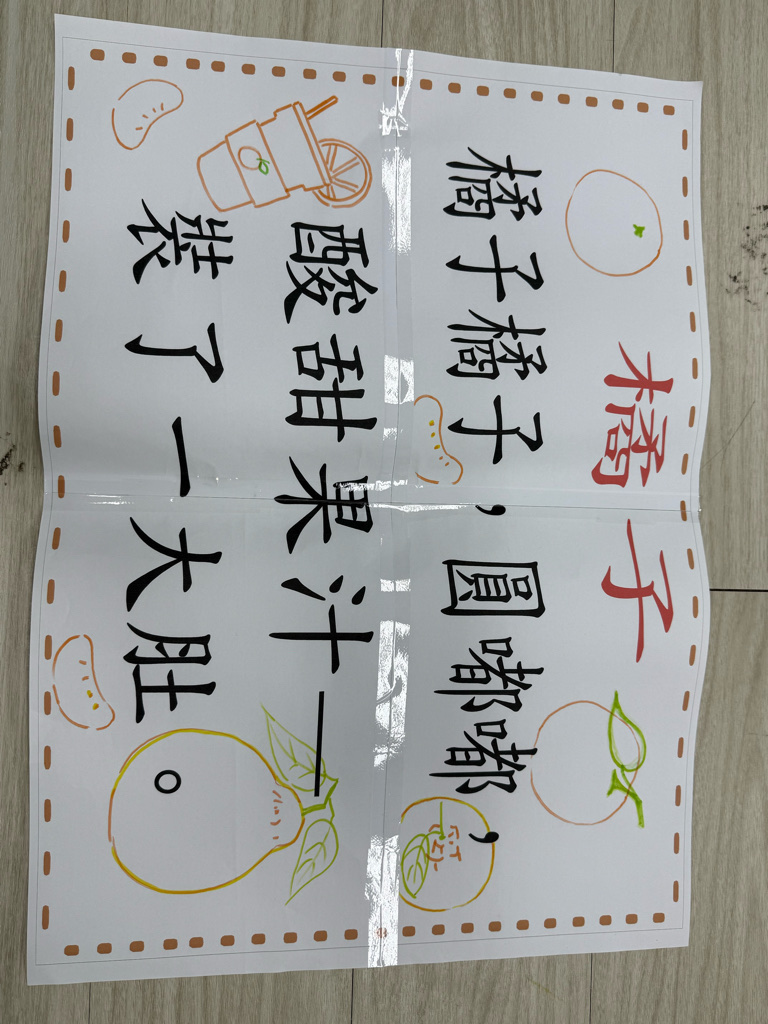 橘子
橘子橘子,圓嘟嘟,
酸甜果汁—
裝了一大肚。